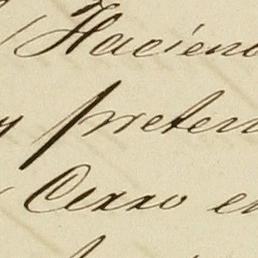 Haciend
y preten
Cerro en